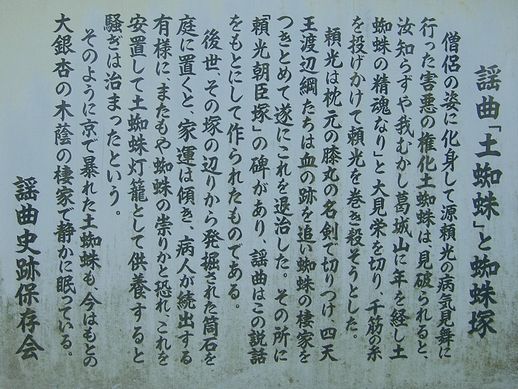 謡曲「土蜘蛛」と蜘蛛塚
僧侶の姿に化身して源頼光の病気見舞に
行った害悪の権化土蜘蛛は、見破られると、
汝知らずや我むかし葛城山に年を経し土
蜘蛛の精魂なり」と大見栄を切り、千筋の糸
を投げかけて頼光を巻き殺そうとした。
頼光は枕元の膝丸の名剣で切りつけ、四天
王渡辺綱たちは血の跡を追い蜘蛛の棲家を
つきとめて遂にこれを退治した。その所に
「頼光朝臣塚」の碑があり、謡曲はこの説話
をもとにして作られたものである。
後世、その塚の辺りから発掘された筒石を
庭に置くと、家運は傾き、病人が続出する
有様に、またもや蜘蛛の祟りかと恐れ、これを
安置して土蜘蛛灯籠として供養すると
騒ぎは治まったという。
そのように京で暴れた土蜘蛛も、今はもとの
大銀杏の木蔭の棲家で静かに眠っている。
謡曲史跡保存会